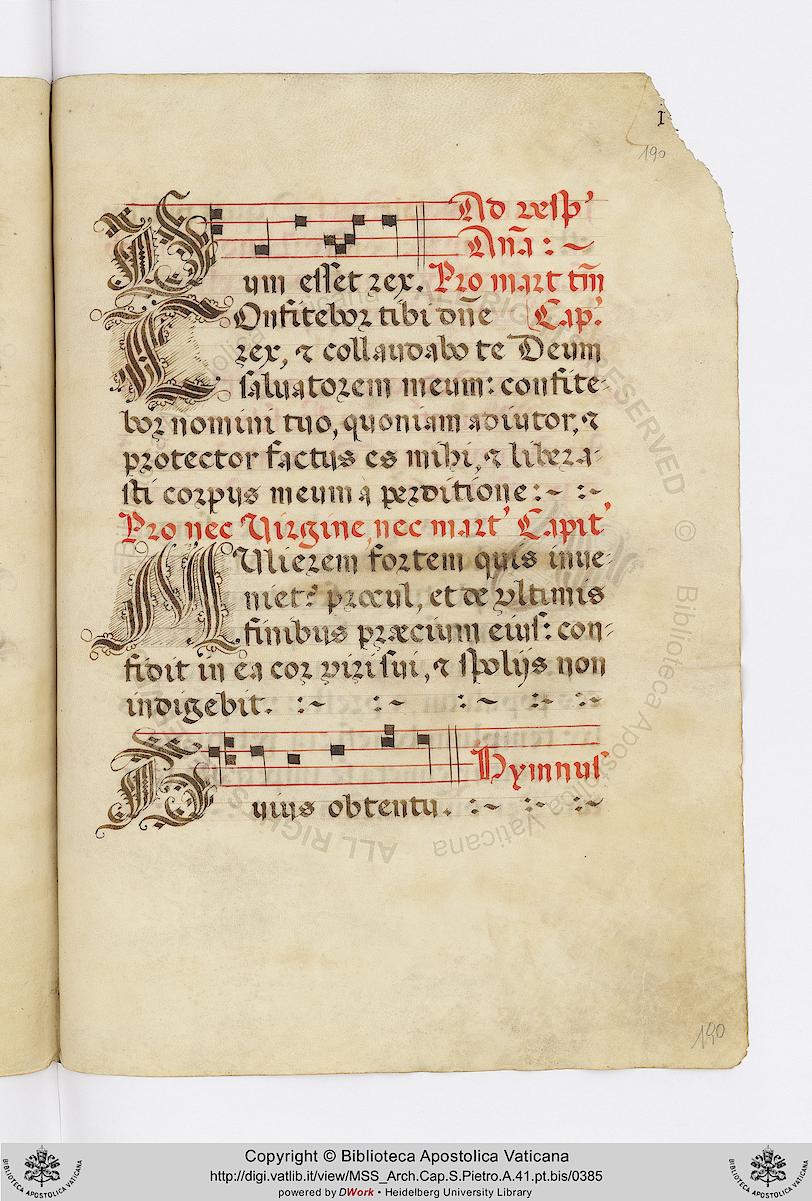 I
190
Ad vesp'
Dum esset rex. Añ̃a: ~
Pro mart tm̃
COnfitebor tibi dñe Cap.'
rex, & collaudabo te Deum
salvatorem meum: confite-
bor nomini tuo, quoniam adiutor, &
protector factus es mihi, & libera-
sti corpus meum à perditione: ~ :~
Pro nec Virgine, nec mart' Capit'
MUlierem fortem quis inve-
niet? procul, et de ultimis
finibus præcium eius: con-
fidit in ea cor viri sui, & spolijs non
indigebit. :~ :~ :~ :~ :~
Hymnus
Huius obtentu. :~ :~ :~
190
ALL RIGHTS RESERVED © Biblioteca Apostolica Vaticana
Copyright © Biblioteca Apostolica Vaticana
http://digi.vatlib.it/view/MSS_Arch.Cap.S.Pietro.A.41.pt.bis/0385
powered by DWork • Heidelberg University Library
BIBLIOTECA APOSTOLICA VATICANA
BIBLIOTECA APOSTOLICA VATICANA